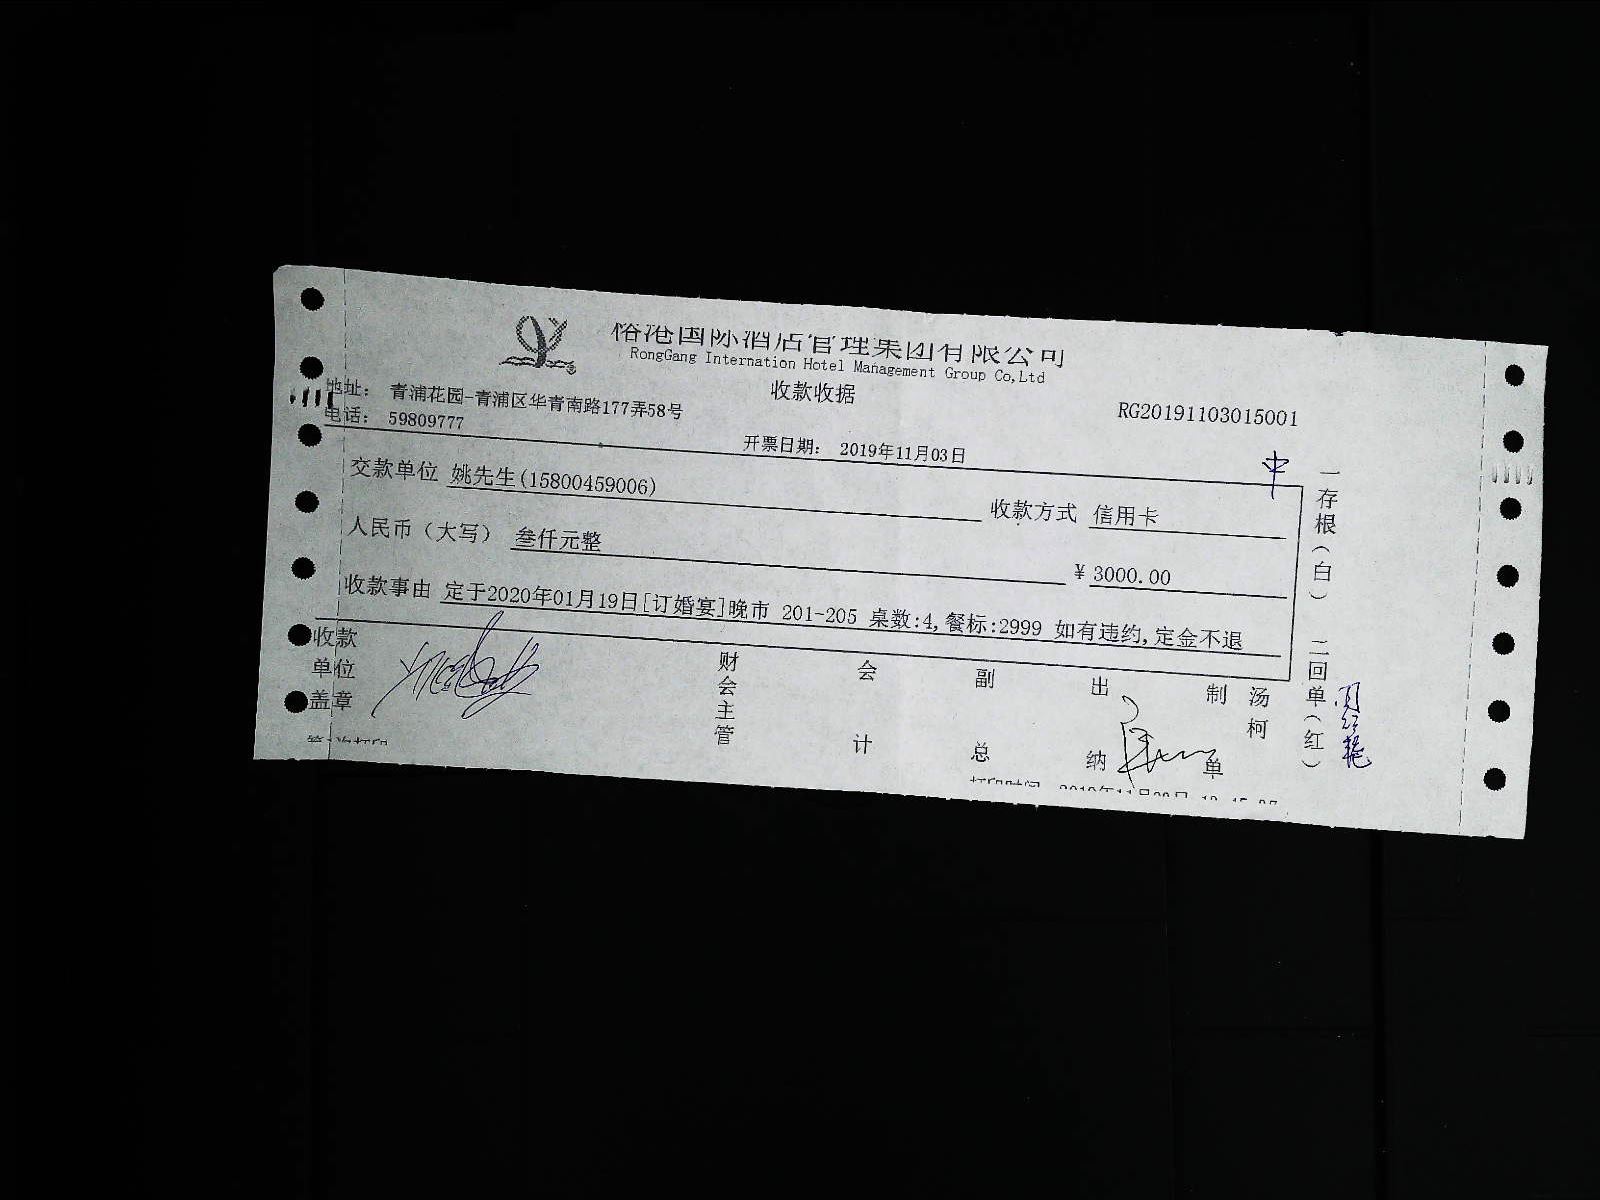 裕港国际酒店管理集团有限公司
RongGang Internation Hotel Management Group Co,Ltd
收款收据
地址： 青浦花园-青浦区华青南路177弄58号
RG20191103015001
电话： 59809777
开票日期： 2019年11月03日
交款单位 姚先生(15800459006)
收款方式 信用卡
人民币（大写） 叁仟元整
¥ 3000.00
收款事由 定于2020年01月19日[订婚宴]晚市 201-205 桌数:4,餐标:2999 如有违约,定金不退
收款单位盖章
财会主管
会计
副总
出纳
制单
汤柯
一存根（白） 二回单（红）